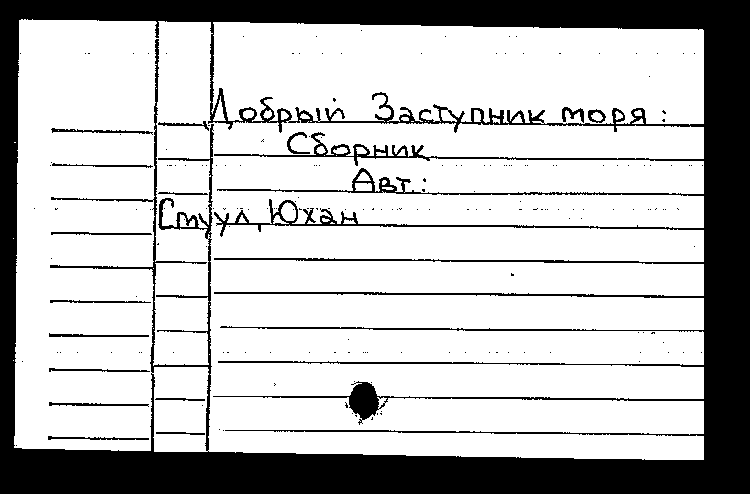 Добрый Заступник моря:
Сборник
Авт.:
Стуул, Юхан